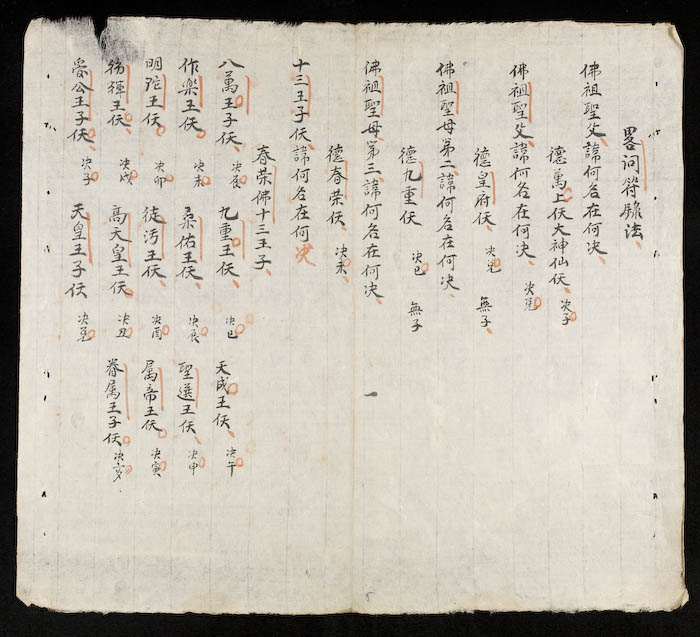 畧问符法
佛祖聖父諱何名在何决
德萬上仸大神仙仸 决子
佛祖聖父諱何名在何决 决兑
德皇府仸 决兑 無子
佛祖聖母第二諱何名在何决
德九重仸 决巳 無子
佛祖聖母第三諱何名在何决
德春荣仸 决未
十三王子仸諱何名在何决
春荣佛十三王子
八萬王子仸 决辰 九重王仸 决巳 天成王仸 决午
作樂王仸 决未 桑佑王仸 决辰 聖選王仸 决申
明王仸 决卯 徒王仸 决酉 属帝王仸 决寅
王仸 决戌 高天皇王仸 决丑 眷属王子仸 决亥
愛公王子仸 决子 天皇王子仸 决兑